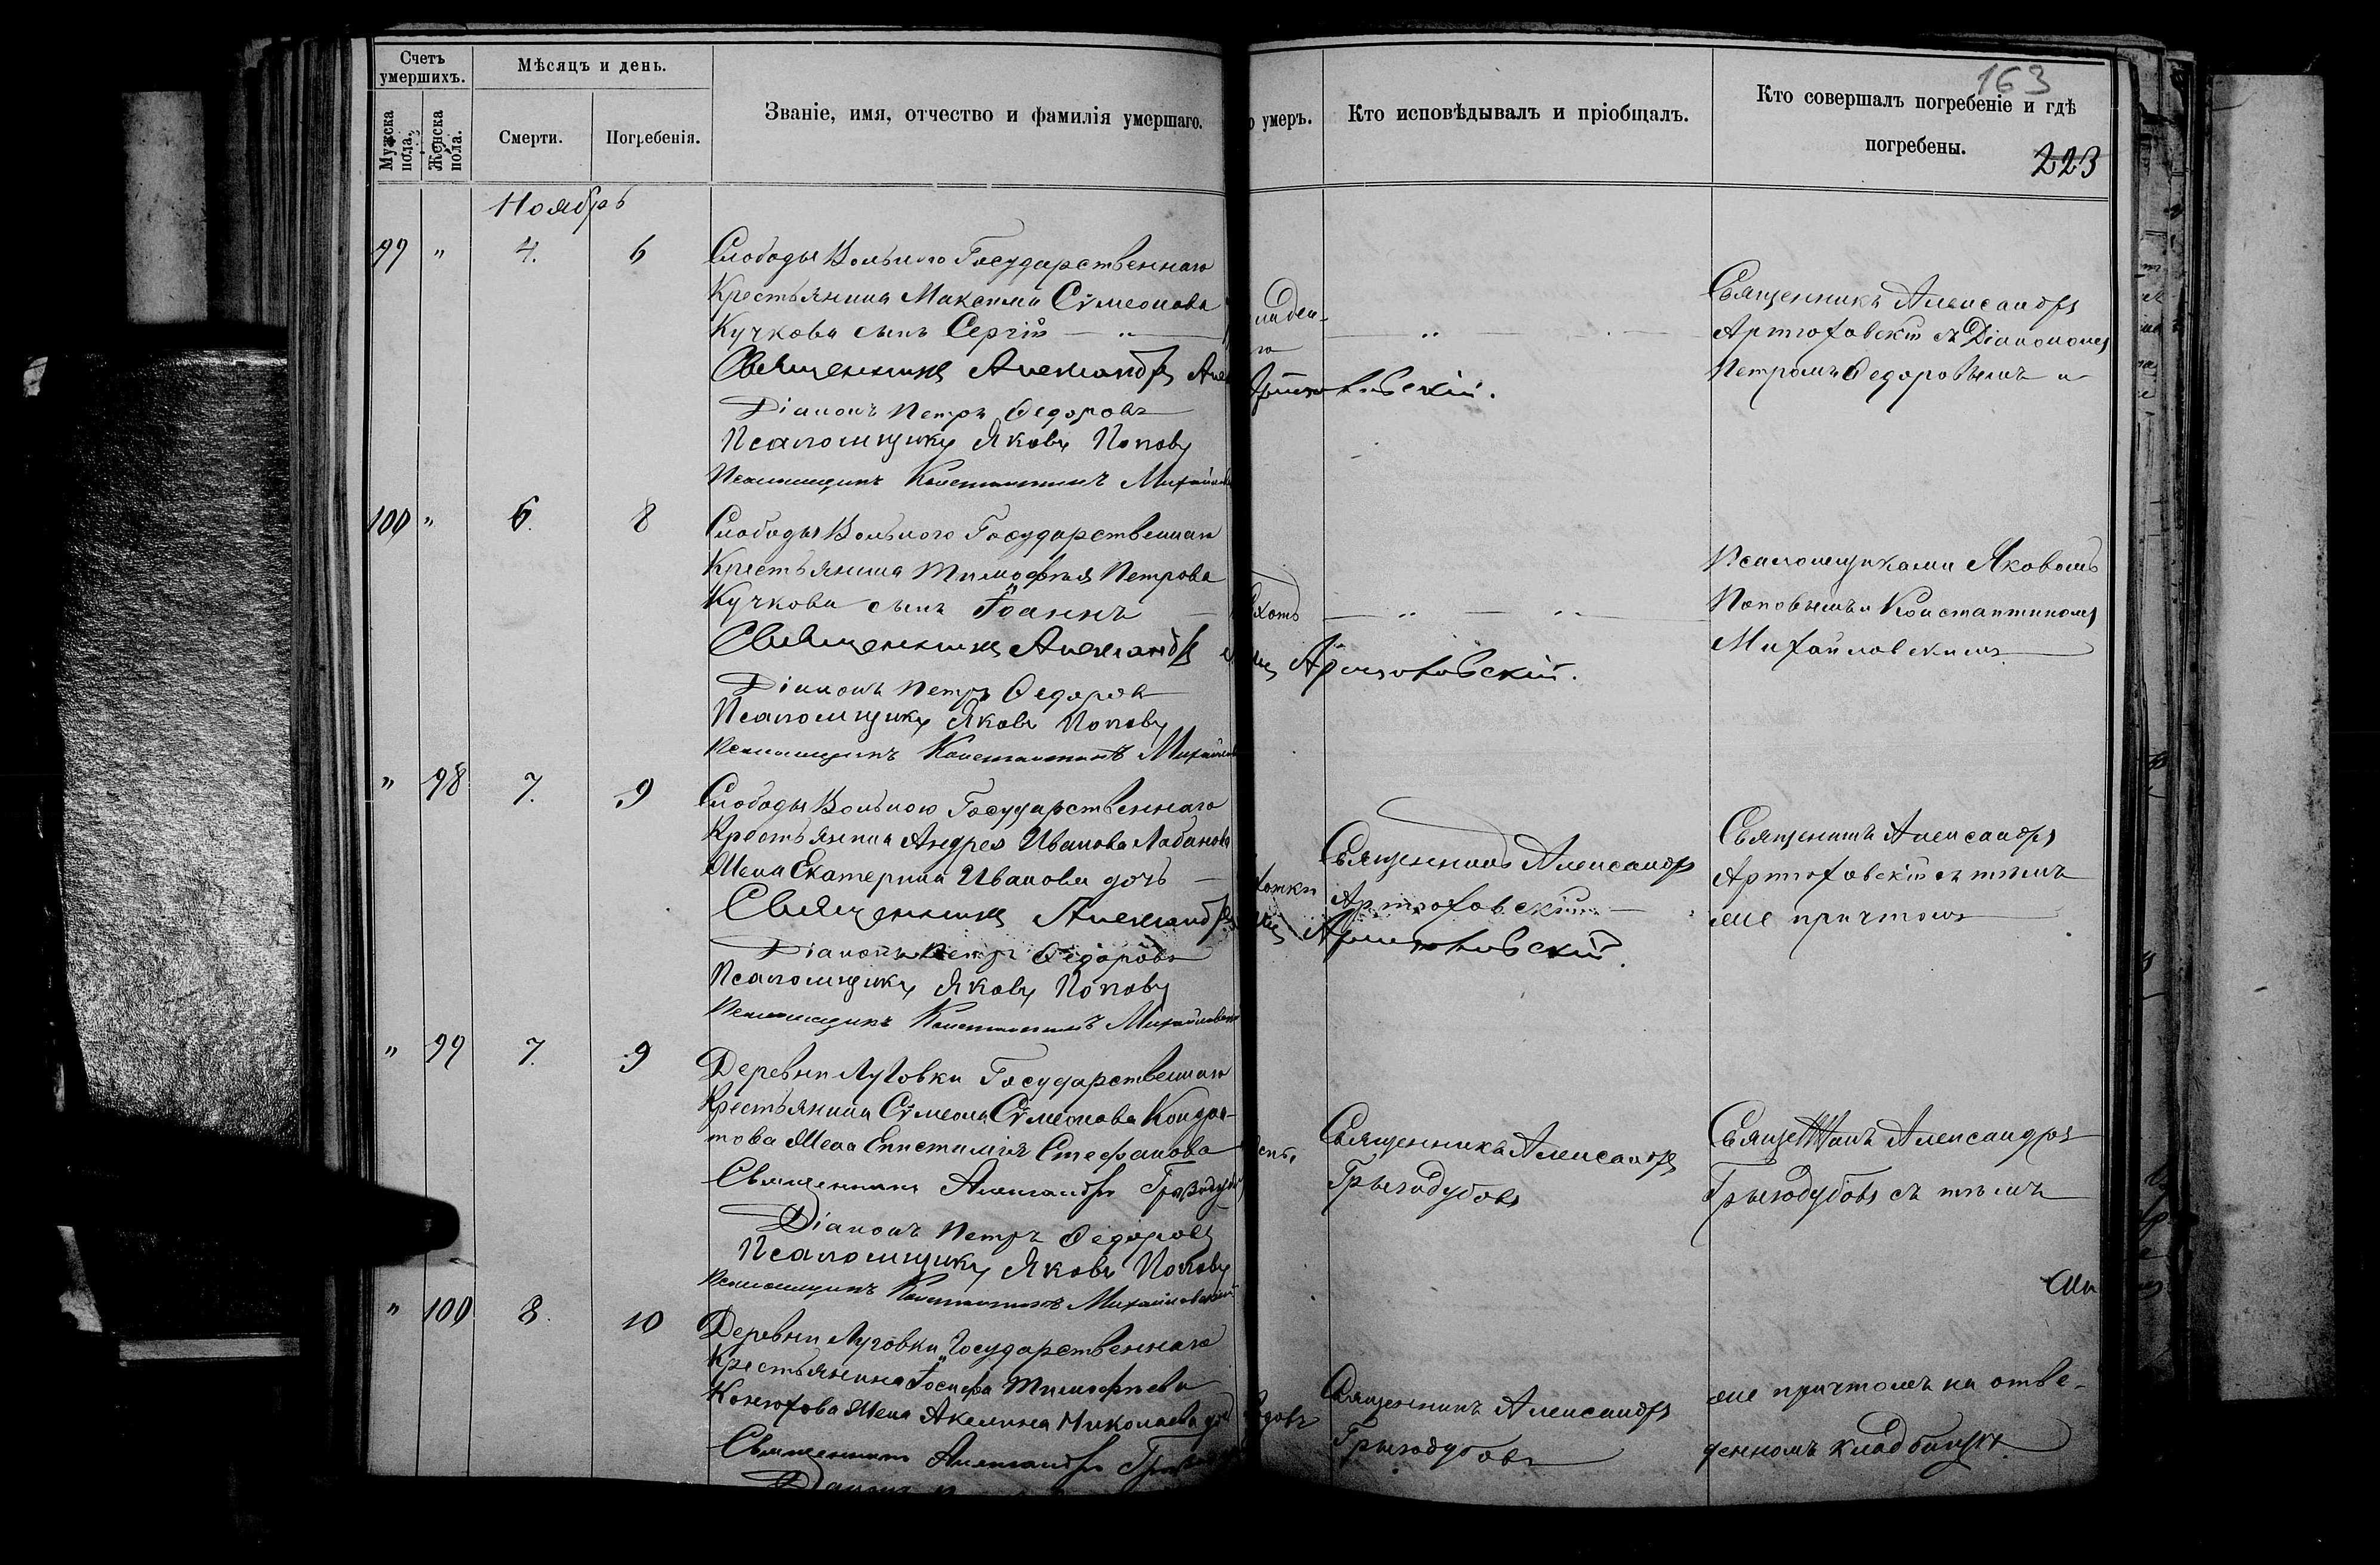 Счетъ умершихъ.
Мѣсяцъ и день.
Званіе, имя, отчество и фамилія умершаго.
Мужска пола.
Женска пола.
Смерти.
Погребенія.
умеръ.
Кто исповѣдывалъ и пріобщалъ.
Кто совершалъ погребеніе и гдѣ
погребены.
163
223
Ноябрь
99 " 4. 6
Слободы Вольного Государственнаго
Крестьянина Максима Сѵмеонова
Кучкова сынъ Сергій
Священникъ Александръ
Артюховскій.
Діаконъ Петръ Ѳедоровъ
Псаломщикъ Яковъ Поповъ
Псаломщикъ Константинъ
Священникъ Александръ
Артюховскій съ Діакономъ
Петромъ Ѳедоровымъ и
100 " 6. 8
Слободы Вольного Государственнаго
Крестьянина Тимофѣя Петрова
Кучкова сынъ Іоаннъ
Священникъ Александръ
Артюховскій.
Діаконъ Петръ Ѳедоровъ
Псаломщикъ Яковъ Поповъ
Псаломщикъ Константинъ
Псаломщиками Яковомъ
Поповымъ и Константиномъ
Михайловскимъ
" 98 7. 9
Слободы Вольного Государственнаго
Крестьянина Андрея Иванова Лобанова
Жена Екатерина Иванова дочь
Священникъ Александръ
Артюховскій.
Діаконъ Петръ Ѳедоровъ
Псаломщикъ Яковъ Поповъ
Псаломщикъ Константинъ Михайловскій
Священникъ Александръ
Артюховскій
Священникъ Александръ
Артюховскій съ тѣмъ
же причтомъ
" 99 7. 9
Деревни Луговки Государственнаго
Крестьянина Сѵмеона Сѵмеонова Кондра-
това Жена Епистимія Стефанова
Священникъ Александръ
Діаконъ Петръ Ѳедоровъ
Псаломщикъ Яковъ Поповъ
Псаломщикъ Константинъ Михайловскій
Священникъ Александръ
Грызодубовъ
Священникъ Александръ
Грызодубовъ съ тѣмъ
" 100 8. 10
Деревни Луговки Государственнаго
Крестьянина Іосифа Тимофѣева
Конюхова Жена Акелина Николаева
Священникъ Александръ
Священникъ Александръ
Грызодубовъ
же причтомъ на отве-
денномъ кладбищѣ.